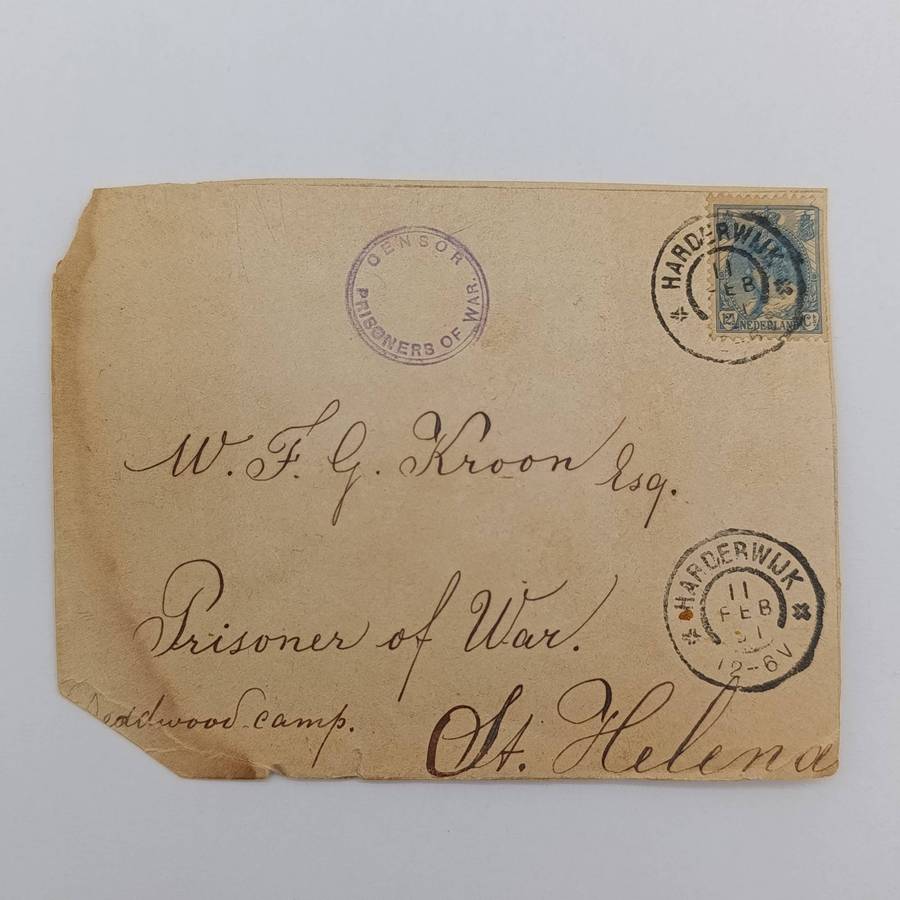 CENSOR
PRISONERS OF WAR.
HARDERWIJK
11
FEB
1
NEDERLAND
W. F. G. Kroon Esq.
Prisoner of War.
Deadwood camp.
St. Helena
HARDERWIJK
11
FEB
01
12-6V